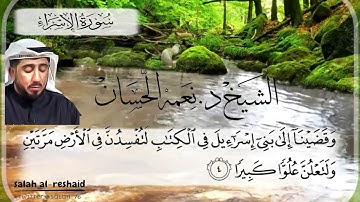 سورة الإسراء
الشيخ د. نعمة الحسان
وَقَضَيْنَآ إِلَىٰ بَنِىٓ إِسْرَٰٓءِيلَ فِى ٱلْكِتَٰبِ لَتُفْسِدُنَّ فِى ٱلْأَرْضِ مَرَّتَيْنِ
وَلَتَعْلُنَّ عُلُوًّا كَبِيرًا ٤
salah al-reshaid